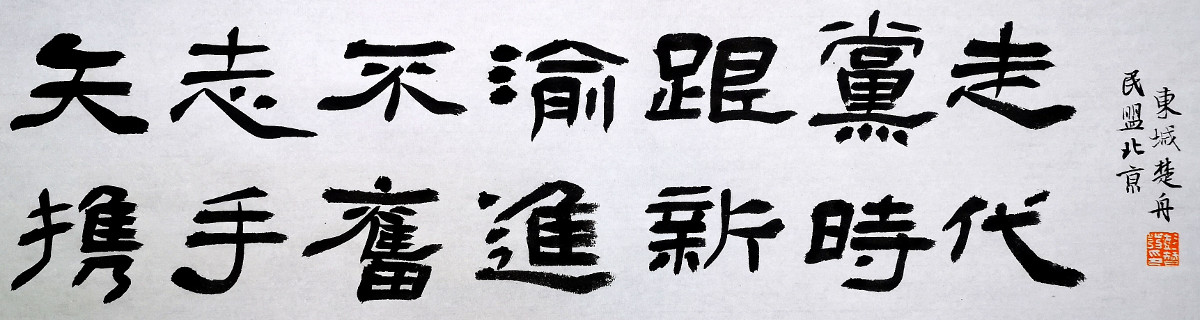 矢志不渝跟黨走
攜手奮進新時代
民盟北京
東城楚舟